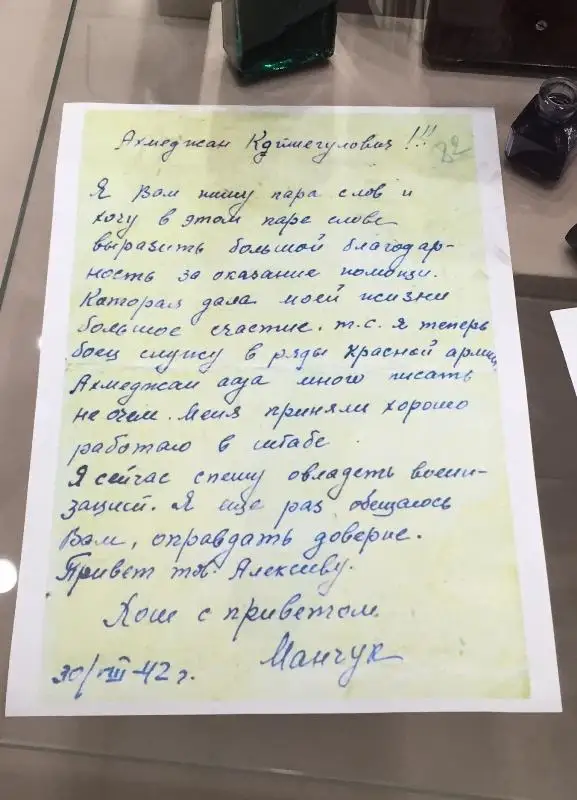 Ахмеджан Кдтшегулович!!!
82
Я Вам пишу пара слов и
хочу в этом паре слове
выразить большой благодар-
ность за оказание помощи.
Которая дала моей жизни
большое счастие. т.е. я теперь
боец служу в ряды Красной армии,
Ахмеджан ага много писать
не очем. Меня приняли хорошо
работаю в штабе.
Я сейчас спешу овладеть воени-
зацией. Я еще раз обещаюсь
Вам, оправдать доверие.
Привет тов. Алексиву.
Хош с приветом
Маншук
30/VIII-42 г.